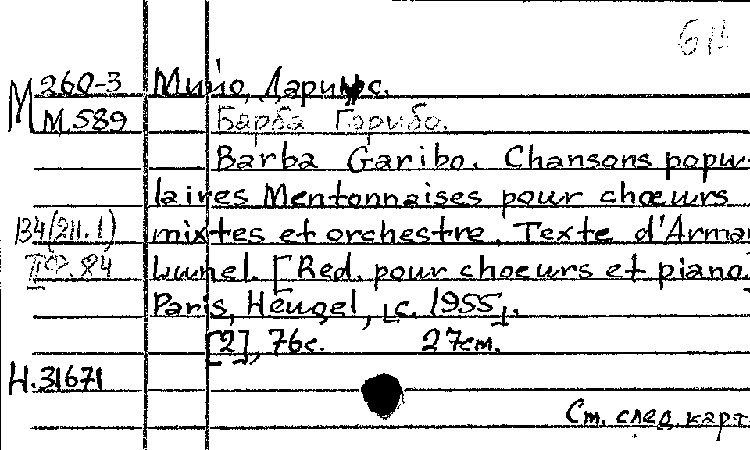 6Н
М 260-3 Мийо, Дариус.
М.589 Барба Гарибо.
Barba Garibo. Chansons popu-
laires Mentonnaises pour chœurs
В4(2П.1) mixtes et orchestre. Texte d'Arman
ПФ.84 Lunel. [Red. pour choeurs et piano]
Paris, Heugel, [c. 1955].
[2], 76с. 27см.
Н.31671
См. след. карт.